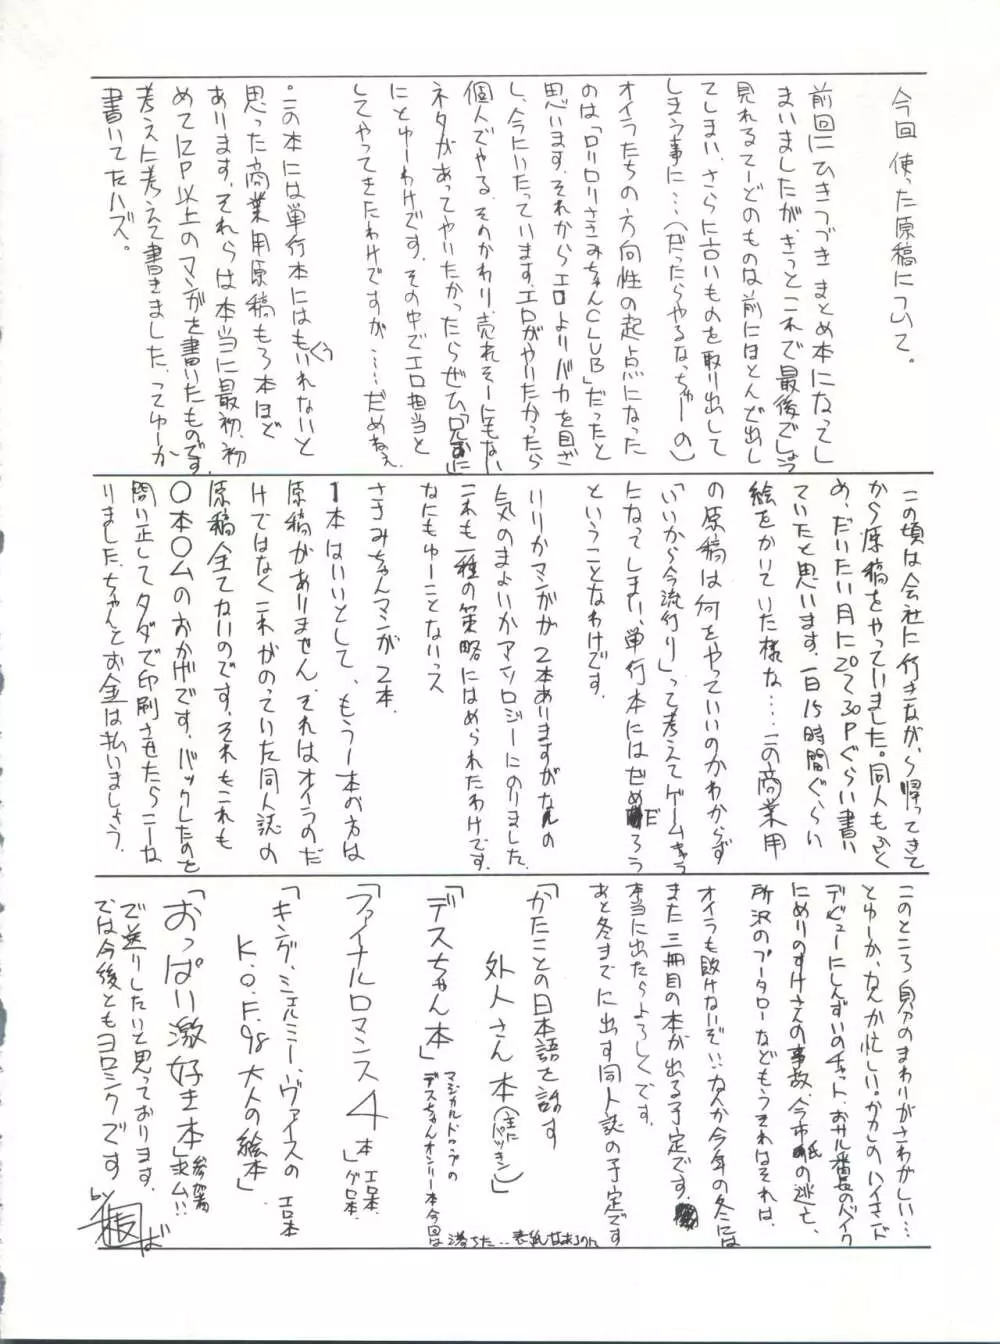 今回使った原稿について。
前回にひきつづきまとめ本になってし
まいましたが、きっとこれで最後でしょう
見れるてーどのものは前にほとんど出し
てしまい、さらに古いものを取り出して
しまう事に…(だったらやるなっちゅーの)
オイラたちの方向性の起点になった
のは「ロリロリささみちゃんCLUB」だったと
思います。それからエロよりバカを目ざ
し、今にいたっています。エロがやりたかったら
個人でやる。そのかわり、売れそーにもない
ネタがあってやりたかったらぜひ兄におに
にとゆーわけです。その中でエロ担当と
してやってきたわけですが……だめねぇ
。この本には単行本にはもういれないと
思った商業用原稿もろ本ほど
あります。それらは本当に最初、初
めて12P以上のマンガを書いたものです
考えに考えて書きました、ってゆーか
書いてたハズ。
この頃は会社に行きながら帰ってきて
から原稿をやっていました。同人もふく
め、だいたい月に20〜30Pぐらい書い
ていたと思います。一日15時間ぐらい
絵をかいていた様な……この商業用
の原稿は何をやっていいのかわからず
「いいから今流行り」って考えてゲームキャラ
になってしまい、単行本にはぜめだろう
ということなわけです。
りりかマンガが2本ありますがなんの
気のまよいかアンソロジーにのりました
これも一種の策略にはめられたわけです。
なにもゆーことないっス
ささみちゃんマンガ2本。
1本はいいとして、もう一本の方は
原稿がありません。それはオイラのだ
けではなくこれがのっていた同人誌の
原稿全てないのです。それもこれも
〇本〇ムのおかげです。バックしたのを
問い正してタダで印刷させたらこーな
りました。ちゃんとお金は払いましょう。
このところ自分のまわりがさわがしい…
とゆーか、なんか忙しい。かかしのハイキード
デビューにしんすいのチャット、おサル番長のバイク
にめりのすけさんの事故、今市紙の逃亡、
所沢のプータローなどもうそれはそれは、
オイラも敗けないぞ!!なんか今年の冬には
また三冊目の本が出る予定です。
本当に出たらよろしくです。
あと冬までに出す同人誌の予定です
「かたことの日本語を話す
外人さん本(主にパツキン)」
「デスちゃん本」マジカルドロップの
デスちゃんオンリー本今回は
落ちた…表紙はあるのに
「ファイナルロマンス4本」エロ本、
グロ本。
「キング、シェルミー、ヴァイスのエロ本
K.O.F.98大人の絵本」
「おっぱい激好き本」参加者
求ム!!
で送りしたいと思っております。
では今後ともヨロシクです
by
ば